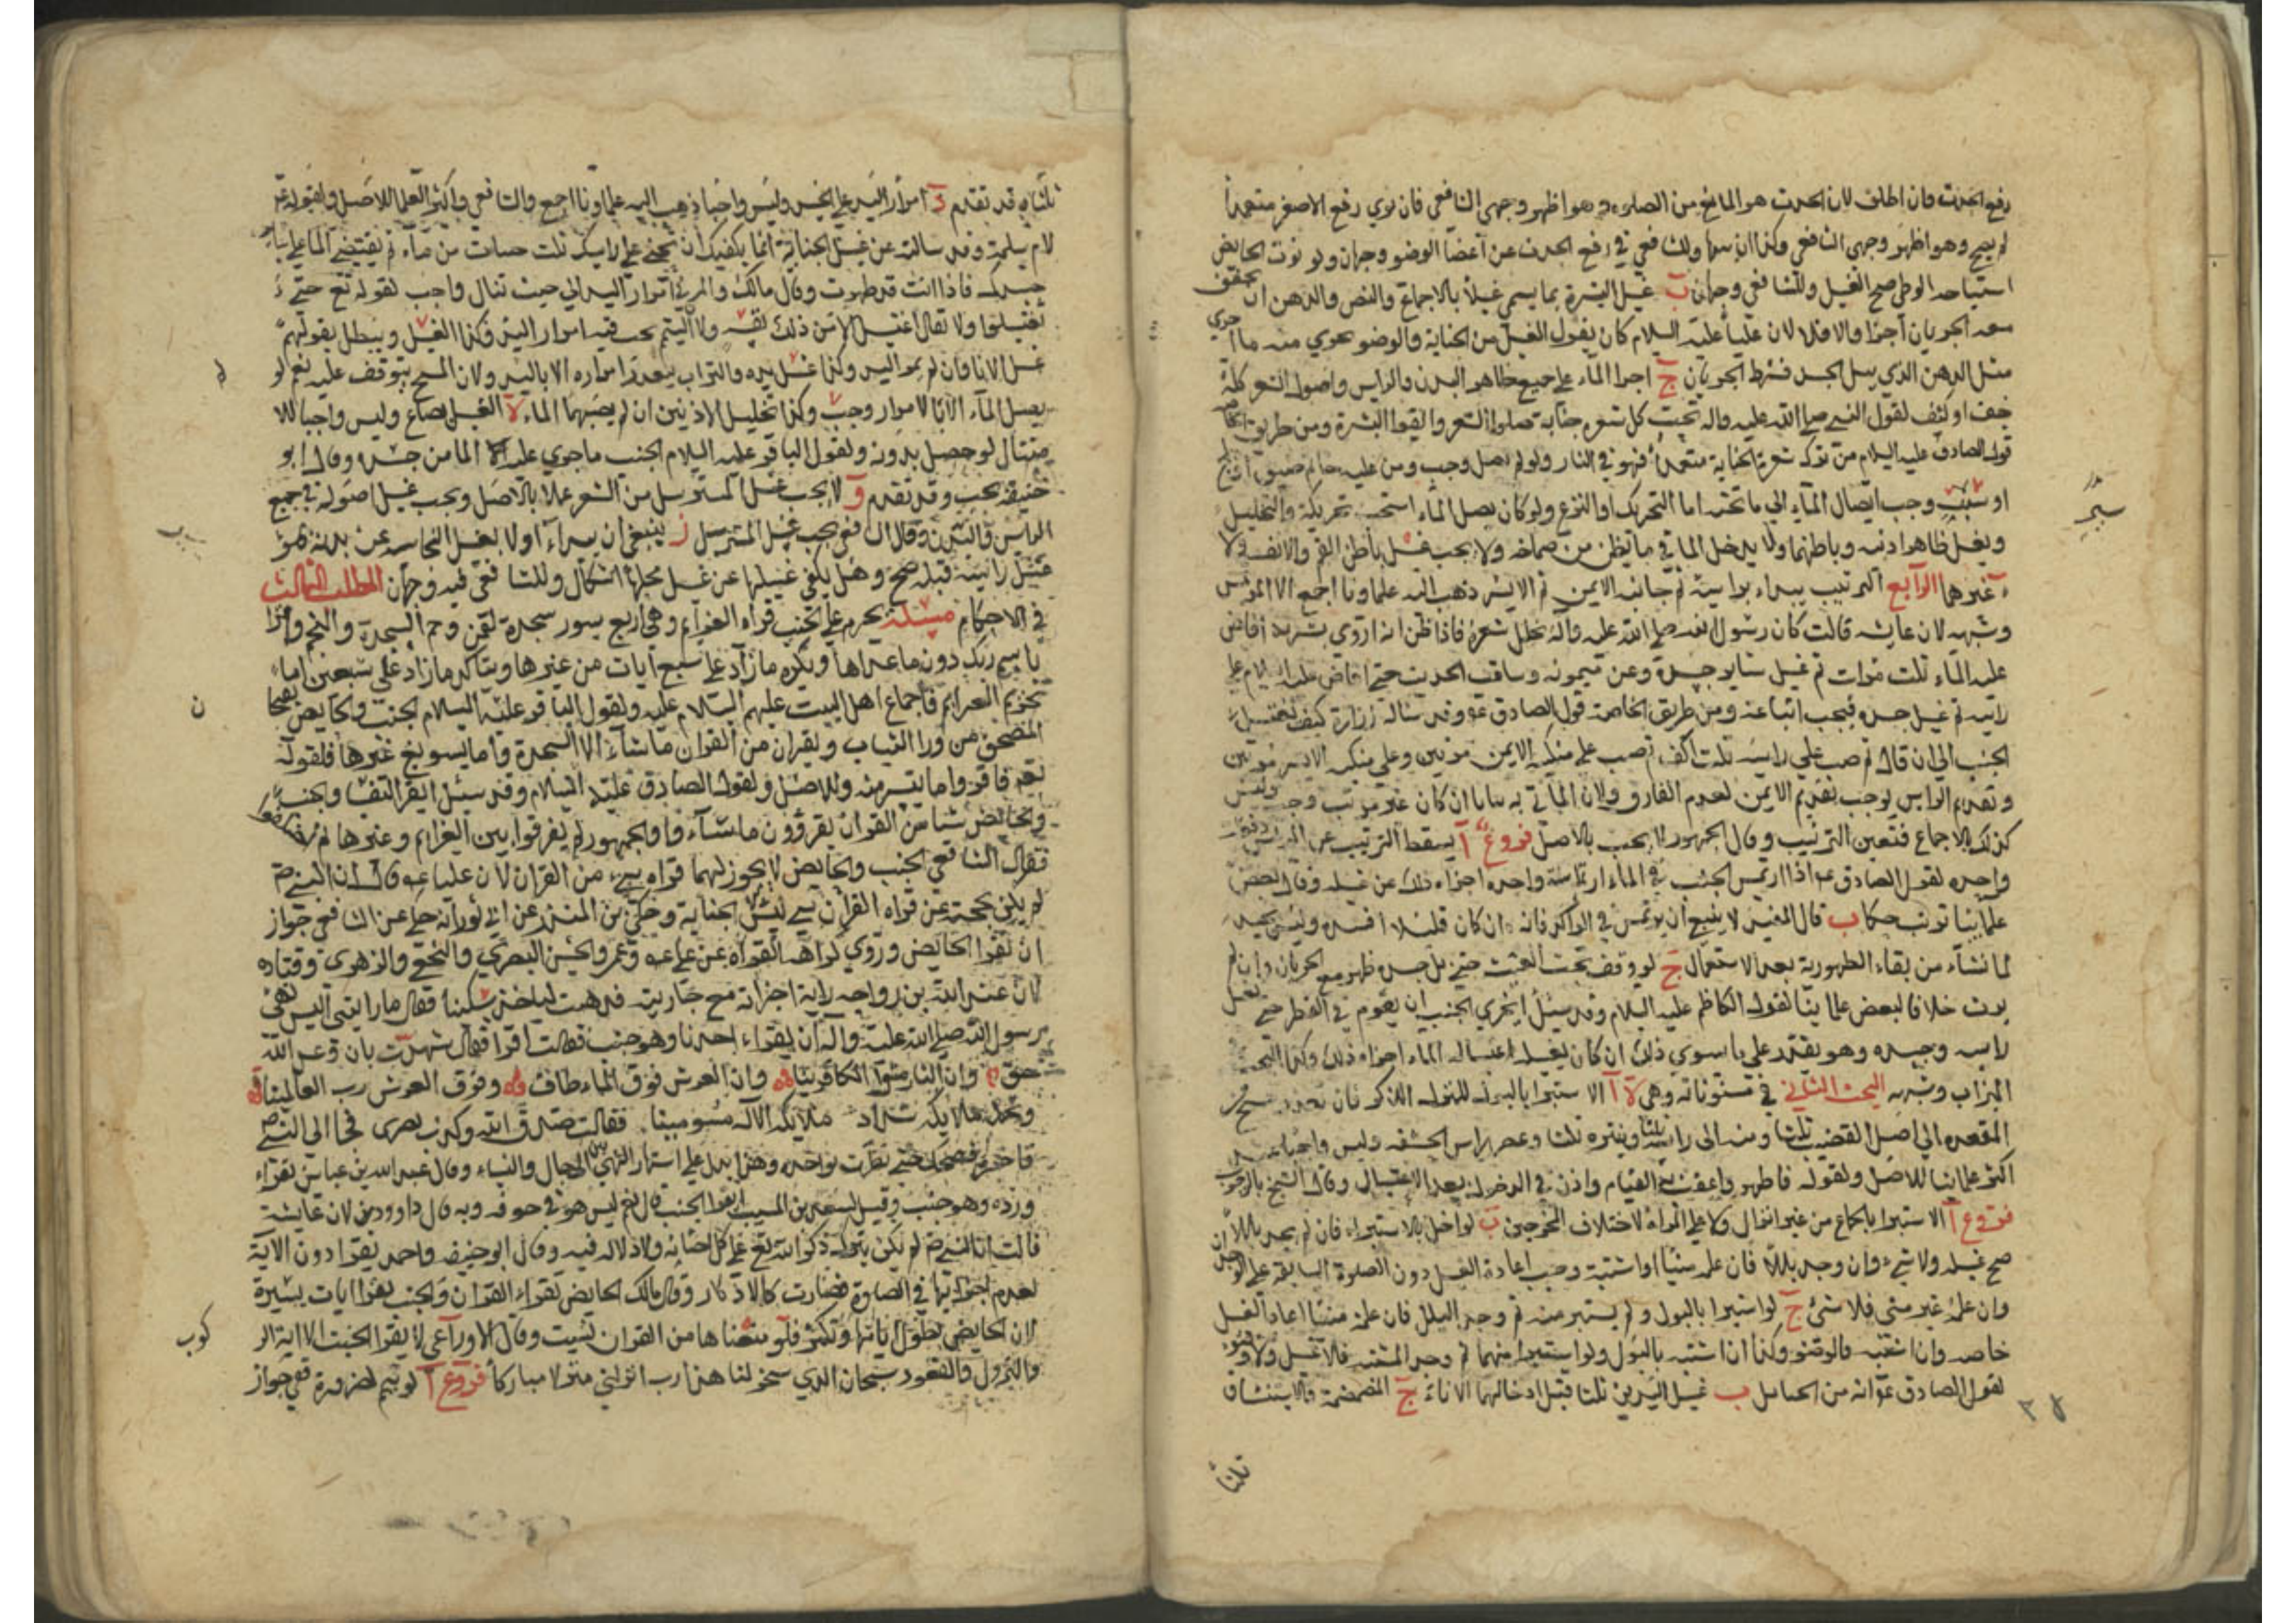 رفع الحدث فان اطلق لان الحدث هو المانع من الصلوة وهو اظهر وجهي الشافعي فان نوي رفع الاصغر متعمدا
لم يصح وهو اظهر وجهي الشافعي وكذا ان سها وللشافعي في رفع الحدث عن اعضا الوضو وجهان ولو نوت الحايض
استباحه الوطي صح الغسل وللشافعي وجهان ب غسل البشرة بما يسمي غسلا بالاجماع والنص والدهن ان تحقق
معه الجريان اجزا والا فلا لان عليا عليه السلام كان يقول الغسل من الجنابة والوضو يجزي منه ما اجزي
مثل الدهن الذي يبل الجسد فشرط الجريان ج اجرا الماء علي جميع ظاهر البدن والراس واصول الشعر كله
خف او كثف لقول النبي صلي الله عليه واله تحت كل شعره جنابة فبلوا الشعر وانقوا البشرة ومن طريق الخاصه
قول الصادق عليه السلام من ترك شعرة من الجنابة متعمدا فهو في النار ولو لم يصل وجب ومن عليه خاتم ضيق او دملج
او سير وجب ايصال الماء الي ما تحته اما التحريك او النزع ولو كان يصل الماء استحب تحريكه والتخليل
ويغسل ظاهر اذنيه وباطنهما ولا يدخل الما في ما بطن من صماخه ولا يجب غسل باطن الفم والانف ولا
غيرهما الرابع الترتيب يبدا براسه ثم جانبه الايمن ثم الايسر ذهب اليه علماونا اجمع
وشبهه لان عايشه قالت كان رسول الله صلي الله عليه واله يخلل شعره فاذا ظن انه اروي بشرته افاض
عليه الماء ثلث مرات ثم غسل ساير جسده وعن ميمونه وساقت الحديث حتي افاض عليه السلام علي
راسه ثم غسل جسده فيجب اتباعه ومن طريق الخاصة قول الصادق ع وقد ساله زرارة كيف يغتسل
الجنب الي ان قال ثم صب علي راسه ثلث اكف ثم صب علي منكبه الايمن مرتين وعلي منكبه الايسر مرتين
وتقديم الراس يوجب تقديم الايمن لعدم الفارق ولان الماتي به بيانا ان كان غير مرتب وجب وليس
كذلك بالاجماع فتعين الترتيب وقال الجمهور لا يجب بالاصل فروع ا يسقط الترتيب عن المرتمس دفعه
واحده لقول الصادق ع اذا ارتمس الجنب في الماء ارتماسة واحده اجزاه ذلك عن غسله وقال بعض
علمائنا ترتب حكما ب قال المفيد لا ينبغي ان يرتمس في الراكد فانه ان كان قليلا افسده وليس بجيد
لما نشاء من بقاء الطهورية بعد الاستعمال ج لو وقف تحت الغيث حتي بل جسده طهر مع الجريان وان لم
يرتب خلافا لبعض علمائنا لقول الكاظم عليه السلام وقد سئل ايجزي الجنب ان يقوم في القطر حتي يغسل
راسه وجسده وهو يقدر علي ما سوي ذلك ان كان يغسله اغتساله الماء اجزاه ذلك وكذا تحت
الميزاب وشبهه البحث الثاني في مسنوناته وهي لا ا الاستبرا بالبول للمنزل الذكر فان تعذر مسح من
المقعده الي اصل القضيب ثلثا ومنه الي راسه ثلثا وينتره ثلثا وعصر راس الحشفه وليس واجبا عند
اكثر علمائنا للاصل ولقوله فاطهروا عقيب القيام واذن في الدخول بعد الاغتسال وقال الشيخ بالوجوب
فروع ا الاستبرا بالجماع من غير انزال ولا علي المراة لاختلاف المخرجين ب لو اخل بالاستبراء فان لم يجد بللا
صح غسله ولا شيء وان وجد بللا فان علمه منيا او اشتبه وجب اعادة الغسل دون الصلوة السابقة علي الوجدان
وان علمه غير مني فلا شئ ج لو استبرا بالبول ولم يستبر منه ثم وجد البلل فان علمه منيا اعاد الغسل
خاصه وان اشتبه فالوضو وكذا ان اشتبه بالبول ولو استبرا منهما ثم وجد المشتبه فلا غسل ولا وضو
لقول الصادق ع انه من الحبايل ب غسل اليدين ثلثا قبل ادخالهما الاناء ج المضمضة والاستنشاق
ثلثا
ثلثا وقد تقدم د امرار اليد علي الجسد وليس واجبا ذهب اليه علماونا اجمع والشافعي واكثر العلما للاصل ولقوله ع
لام سلمة وقد سالته عن غسل الجنابة انما يكفيك ان تحثي علي راسك ثلث حثيات من ماء ثم تفيضي الما علي ساير
جسدك فاذا انت قد طهرت وقال مالك والمزني امرار اليد الي حيث تنال واجب لقوله تع حتي
تغتسلوا ولا تقال اغتسل الا من ذلك نفسه ولان التيمم يجب فيه امرار اليد وكذا الغسل ويبطل بقولهم
غسل الاناء وان لم يمر اليد وكذا غسل يده والتراب يتعذر امراره الا باليد ولان المسح يتوقف عليه نعم لو
لم يصل الماء الا بالامرار وجب وكذا تخليل الاذنين ان لم يصبهما الماء ه الغسل بصاع وليس واجبا للا
متثال لو حصل بدونه ولقول الباقر عليه السلام الجنب ما جري عليه الما من جسده وقال ابو
حنيفة يجب وقد تقدم و لا يجب غسل المسترسل من الشعر عملا بالاصل ويجب غسل اصوله في جميع
الراس والبدن وقال الشافعي يجب غسل المسترسل ز ينبغي ان يبداء اولا بغسل النجاسه عن بدنه ثم
غسل راسه قبله صح وهل يكفي غسلها عن غسل محلها اشكال وللشافعي فيه وجهان المطلب الثالث
في الاحكام مسئلة يحرم علي الجنب قراة العزايم وهي اربع سور سجدة لقمن وحم السجدة والنجم واقرا
باسم ربك دون ما عداها ويكره ما زاد علي سبع ايات من غيرها ويتاكد ما زاد علي سبعين اما
تحريم العزايم فاجماع اهل البيت عليهم السلام عليه ولقول الباقر عليه السلام الجنب والحايض يفتحان
المصحف من ورا الثياب ويقران من القران ما شاء الا السجدة واما تسويغ غيرها فلقوله
تعم فاقروا ما تيسر منه وللاصل ولقول الصادق عليه السلام وقد سئل ايقرا النفسا والجنب
والحايض شيا من القران يقرؤون ما شاء واما الجمهور لم يفرقوا بين العزايم وغيرها ثم اختلفوا
فقال الشافعي الجنب والحايض لا يجوز لهما قراة شيء من القران لان عليا ع قال ان النبي ص
لم يكن يحجبه عن قراة القران شي ليس الجنابة وحكي بن المنذر عن ابي ثور انه حكي عن الشافعي جواز
ان تقرا الحايض وروي كراهة القراة عن علي ع وعمر والحسن البصري والنخعي والزهري وقتاده
لان عبد الله بن رواحه راته امراته مع جاريته فذهبت لتاخذ سكينا فقال ما رايتني اليس نهي
رسول الله صلي الله عليه واله ان يقراء احدنا وهو جنب فقالت اقرا فقال شهدت بان وعد الله
حق وان النار مثوي الكافرينا وان العرش فوق الماء طاف وفوق العرش رب العالمينا
وتحمله ملايكة شداد ملايكة الاله مسومينا فقالت صدق الله وكذب بصري فجا الي النبي ص
فاخبره فضحك حتي بدت نواجذه وهذا يدل علي اشتهار النهي بين الرجال والنساء وقال عبد الله بن عباس يقراء
ورده وهو جنب وقيل لسعيد بن المسيب ايقرا الجنب قال نعم ليس هو في جوفه وبه قال داوود لان عايشة
قالت ان النبي ص لم يكن يترك ذكر الله تع علي كل احيانه ولا دلاله فيه وقال ابو حنيفه واحمد يقرا دون الاية
لعدم اجزايها في الصلوة فصارت كالاذكار وقال مالك الحايض تقراء القران والجنب يقرا ايات يسيرة
لان الحايض تطول ايامها وتكثر فلو منعناها من القران نسيت وقال الاوزاعي لا يقرا الجنب الا اية الر
والنزول والقعود سبحان الذي سخر لنا هذا رب انزلني منزلا مباركا فروع ا لو تيمم لضرورة ففي جواز